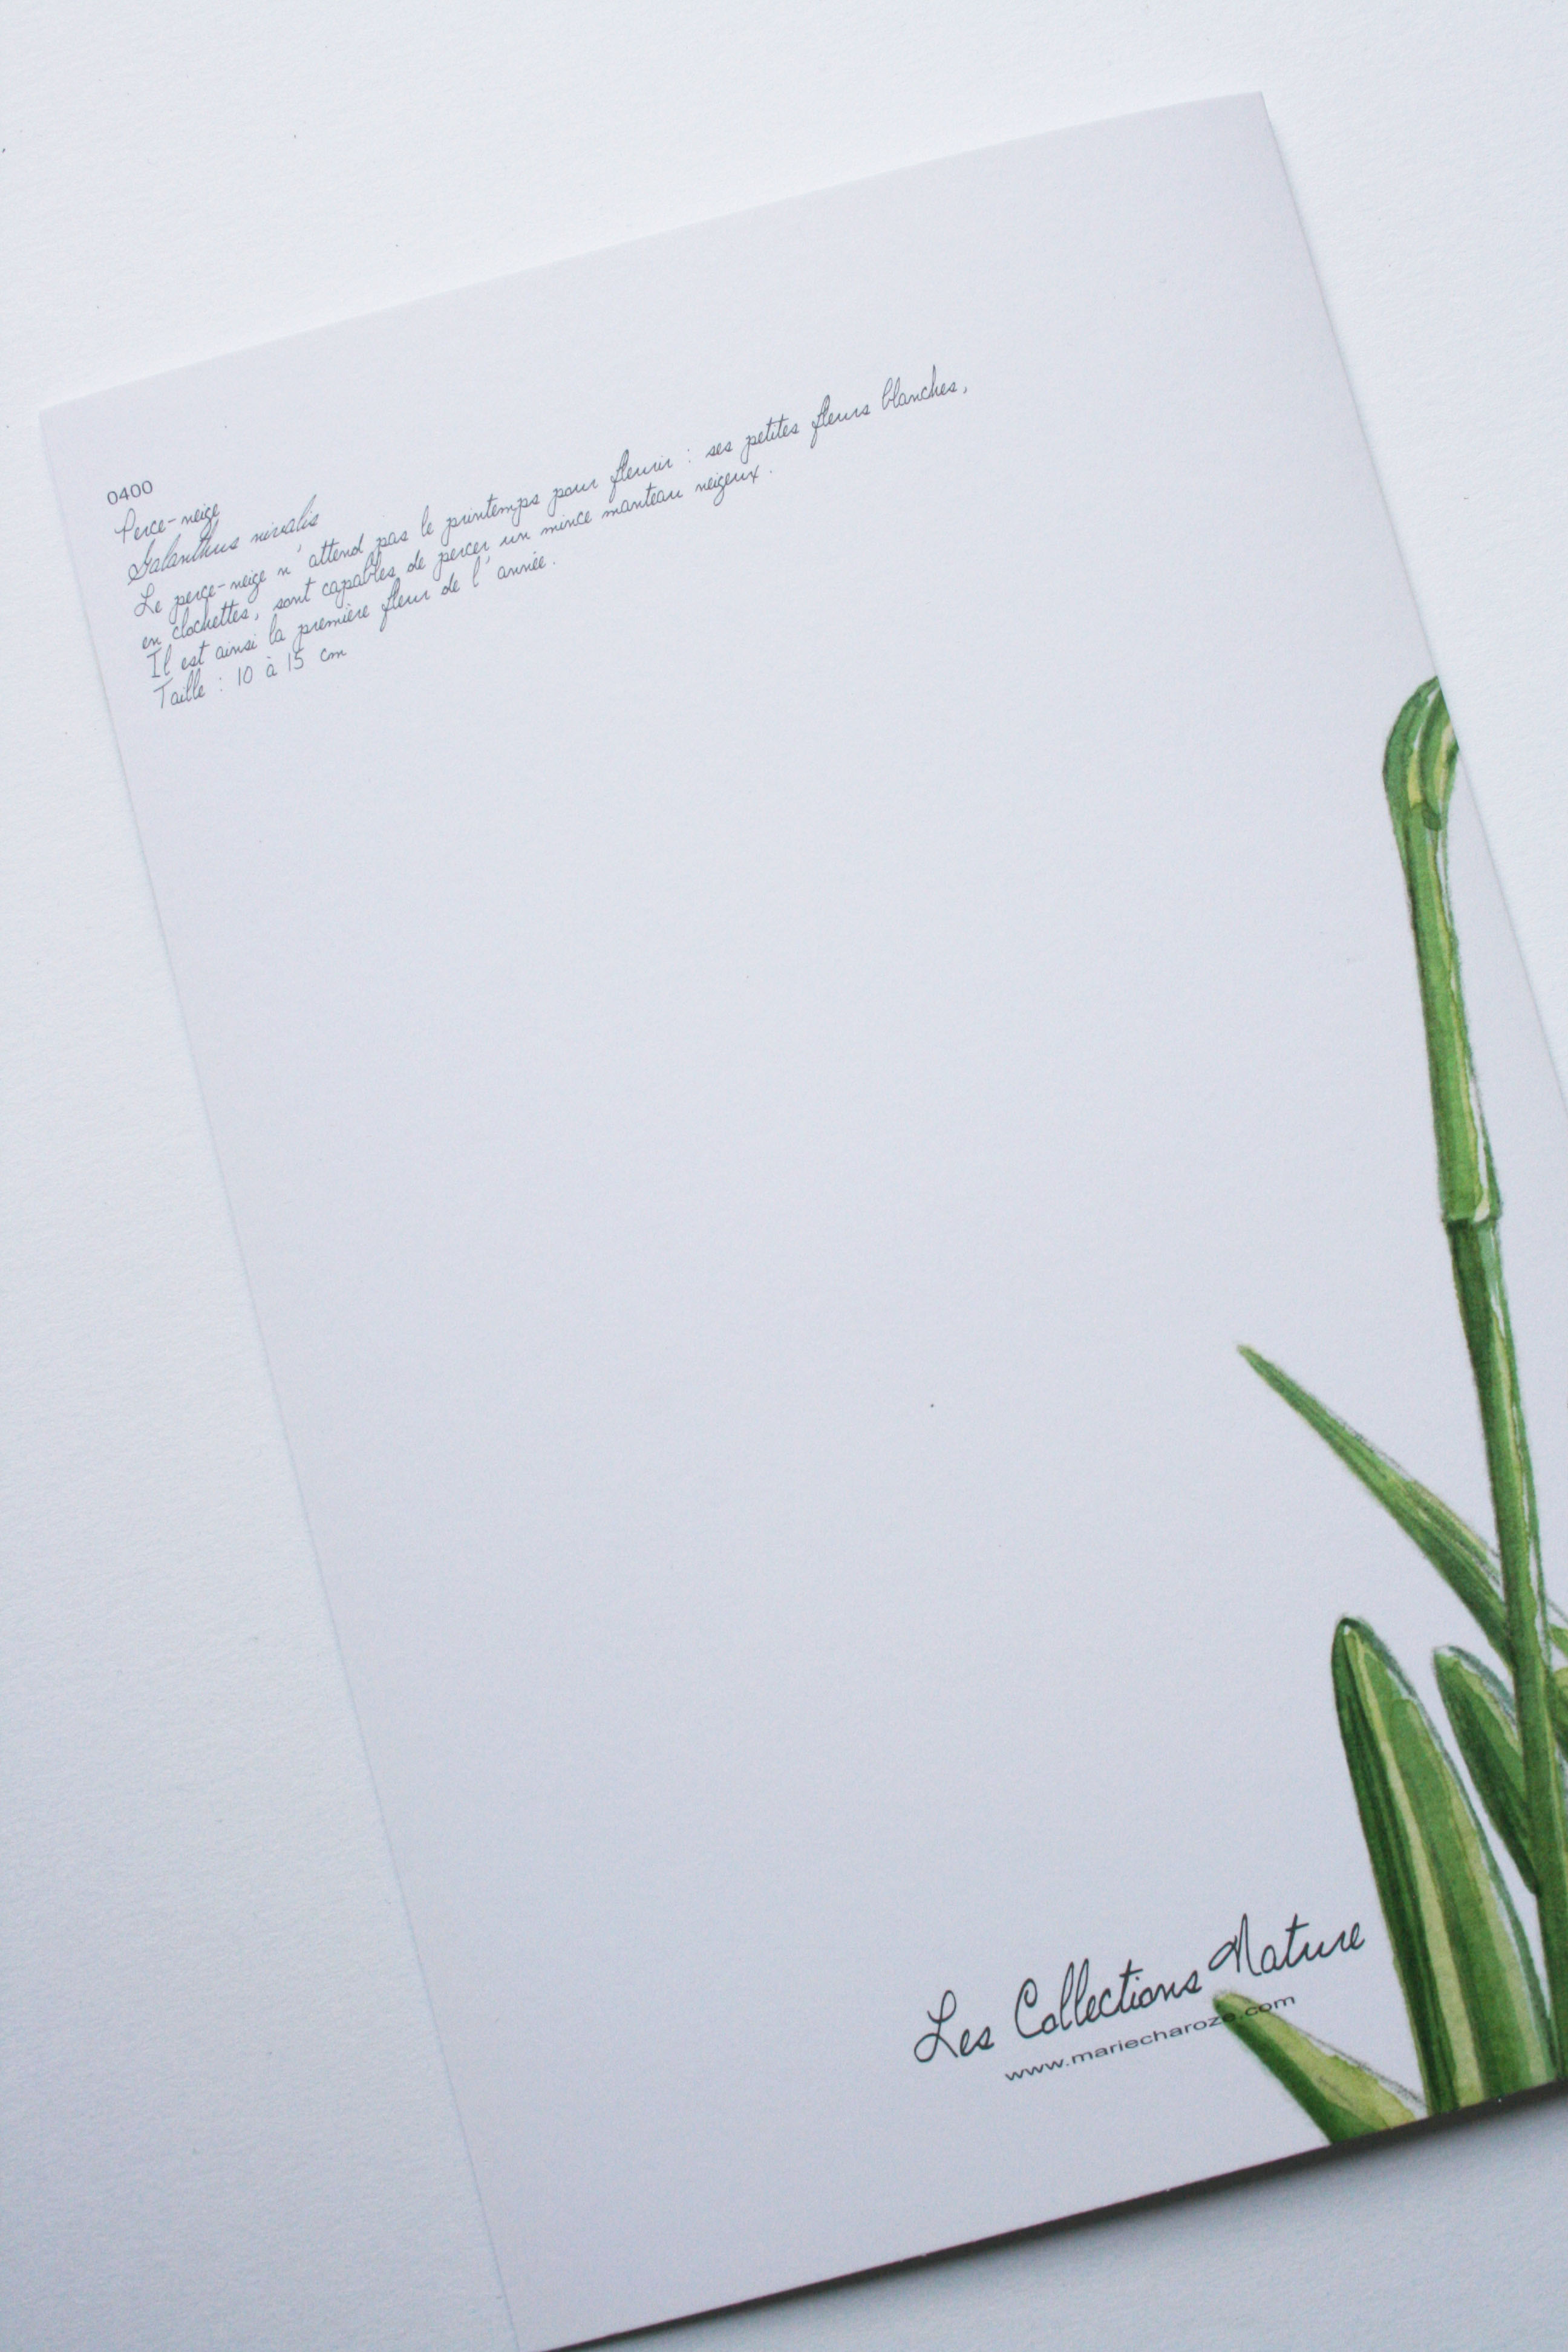 0400
Perce-neige
Galanthus nivalis
Le perce-neige n'attend pas le printemps pour fleurir : ses petites fleurs blanches,
en clochettes, sont capables de percer un mince manteau neigeux.
Il est ainsi la première fleur de l'année.
Taille : 10 à 15 cm
Les Collections Nature
www.mariecharoze.com